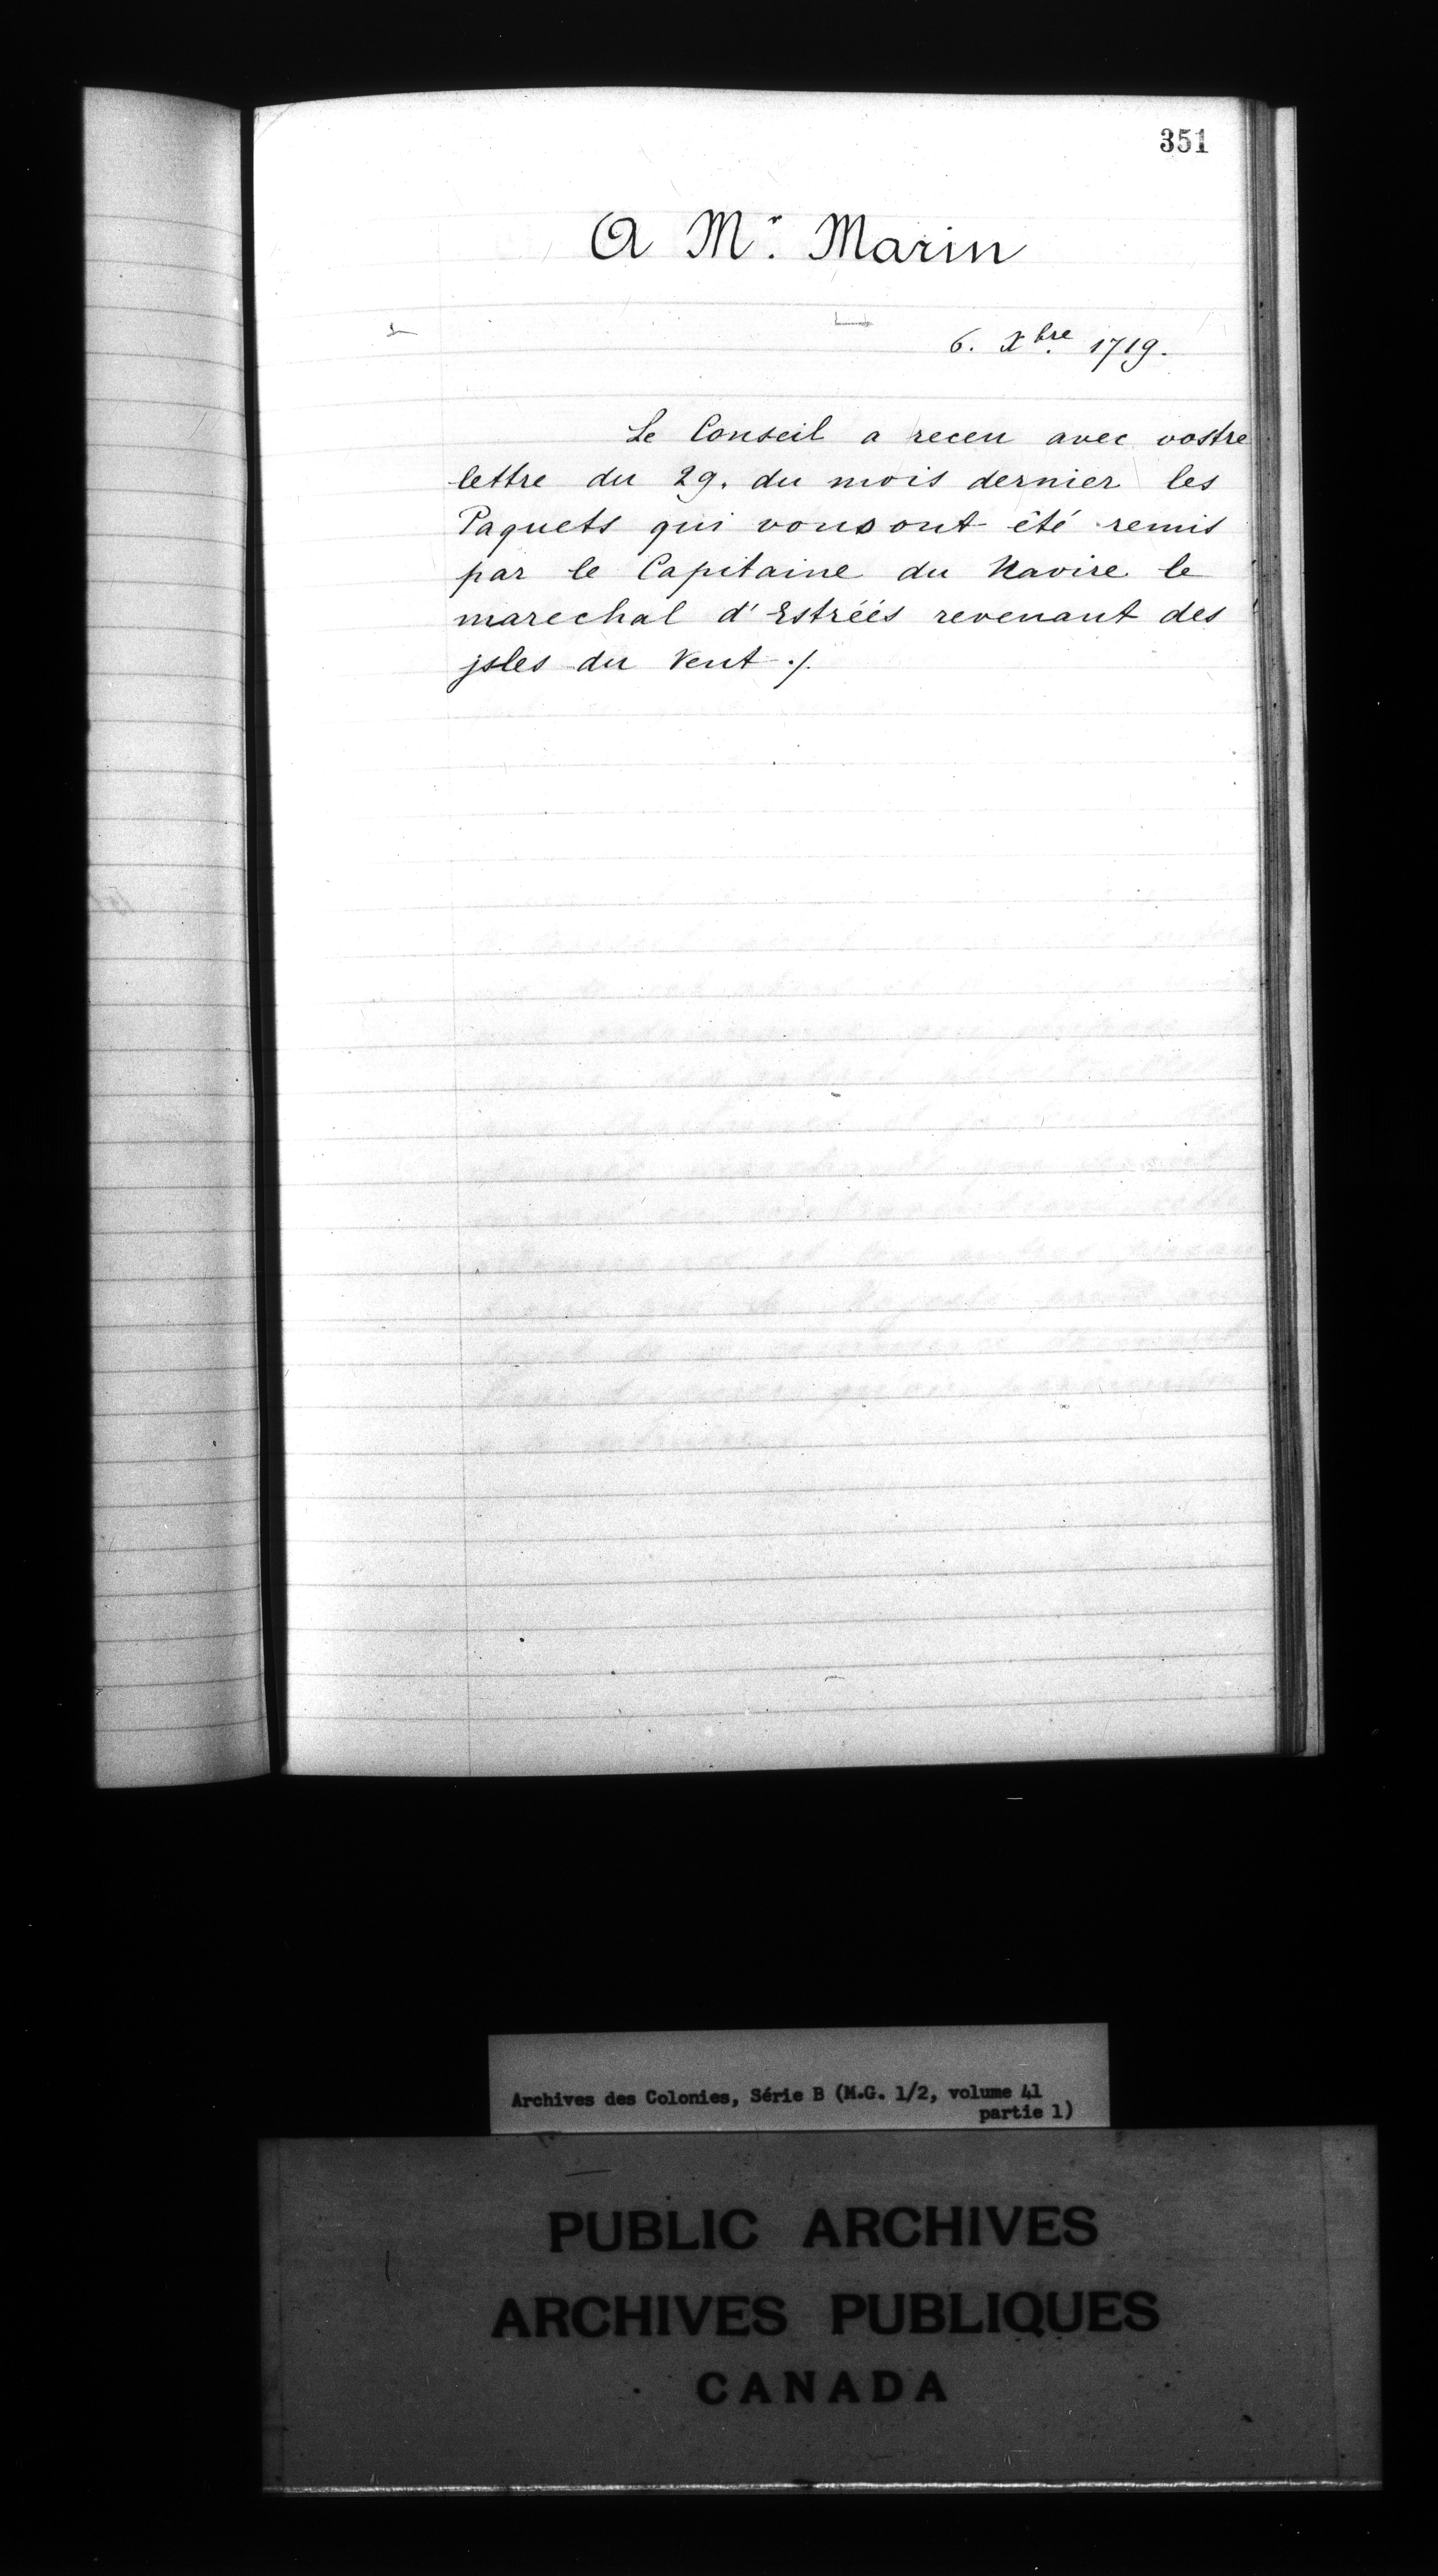 351
A Mr. Marin
6. Xbre. 1719.
Le Conseil a receu avec vostre
lettre du 29. du mois dernier les
Paquets qui vous ont été remis
par le Capitaine du Navire le
marechal d'Estréés revenant des
jsles du Vent ./.
Archives des Colonies, Série B (M.G. 1/2, volume 41
partie 1)
PUBLIC ARCHIVES
ARCHIVES PUBLIQUES
CANADA